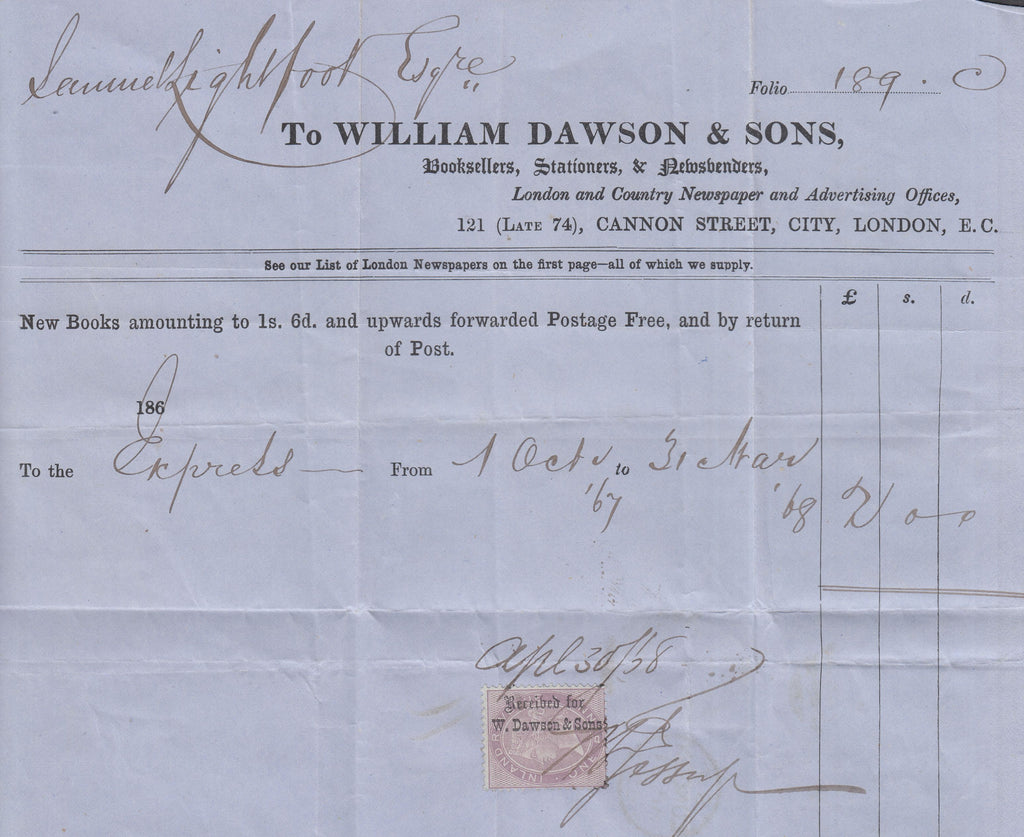 Samuel Lightfoot Esqre
Folio 189.
To WILLIAM DAWSON & SONS,
Booksellers, Stationers, & Newsvenders,
London and Country Newspaper and Advertising Offices,
121 (LATE 74), CANNON STREET, CITY, LONDON, E.C.
See our List of London Newspapers on the first page—all of which we supply.
£ s. d.
New Books amounting to 1s. 6d. and upwards forwarded Postage Free, and by return
of Post.
186
To the Express From 1 Oct to 31 Mar
'67 '68 2 0 0
Apl 30/68
Received for
W. Dawson & Sons
INLAND
Jessup